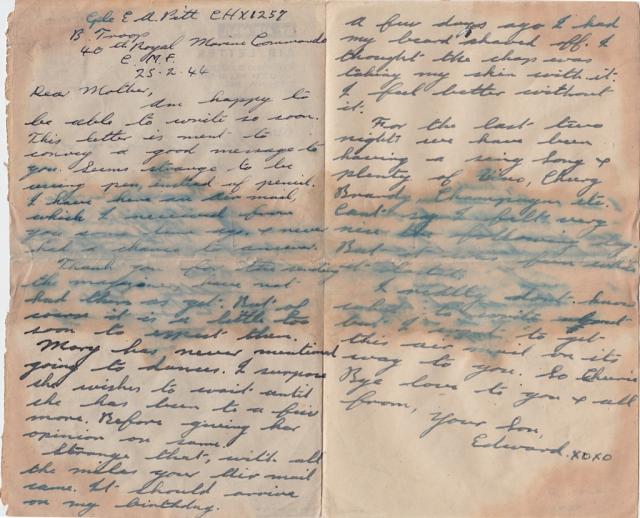 Cple E A Pitt CHX1257
B Troop
40th Royal Marine Commando
C.M.F.
25-2-44
Dear Mother,
Am happy to
be able to write so soon.
This letter is ment to
convey a good message to
you. Seems strange to be
using pen, instead of pencil.
I have here an air mail,
which I received from
you some time ago, & never
had a chance to answer.
Thank you for the sending
the magazines, have not
had them as yet. But of
course it is a little too
soon to expect them.
Mary has never mentioned
going to dances. I suppose
she wishes to wait until
she has been to a few
more. Before giving her
opinion on same.
Strange that, with all
the miles your Air mail
came. It should arrive
on my birthday.
a few days ago I had
my beard shaved off. I
thought the chap was
taking my skin with it.
I feel better without
it.
For the last two
nights we have been
having a sing song &
plenty of Vino, Cherry
Brandy, Champayne, etc.
Cant say I felt very
nice the following day.
But it was fun while
it lasted.
I really dont know
what to write about
but. I want to get
this air mail on its
way to you. So Cheerio
Bye love to you & all
from, Your Son,
Edward. XOXO